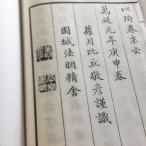 以附卷末云
萬延元年庚申春
蘿月比丘敬彥謹識
圓城法明精舍